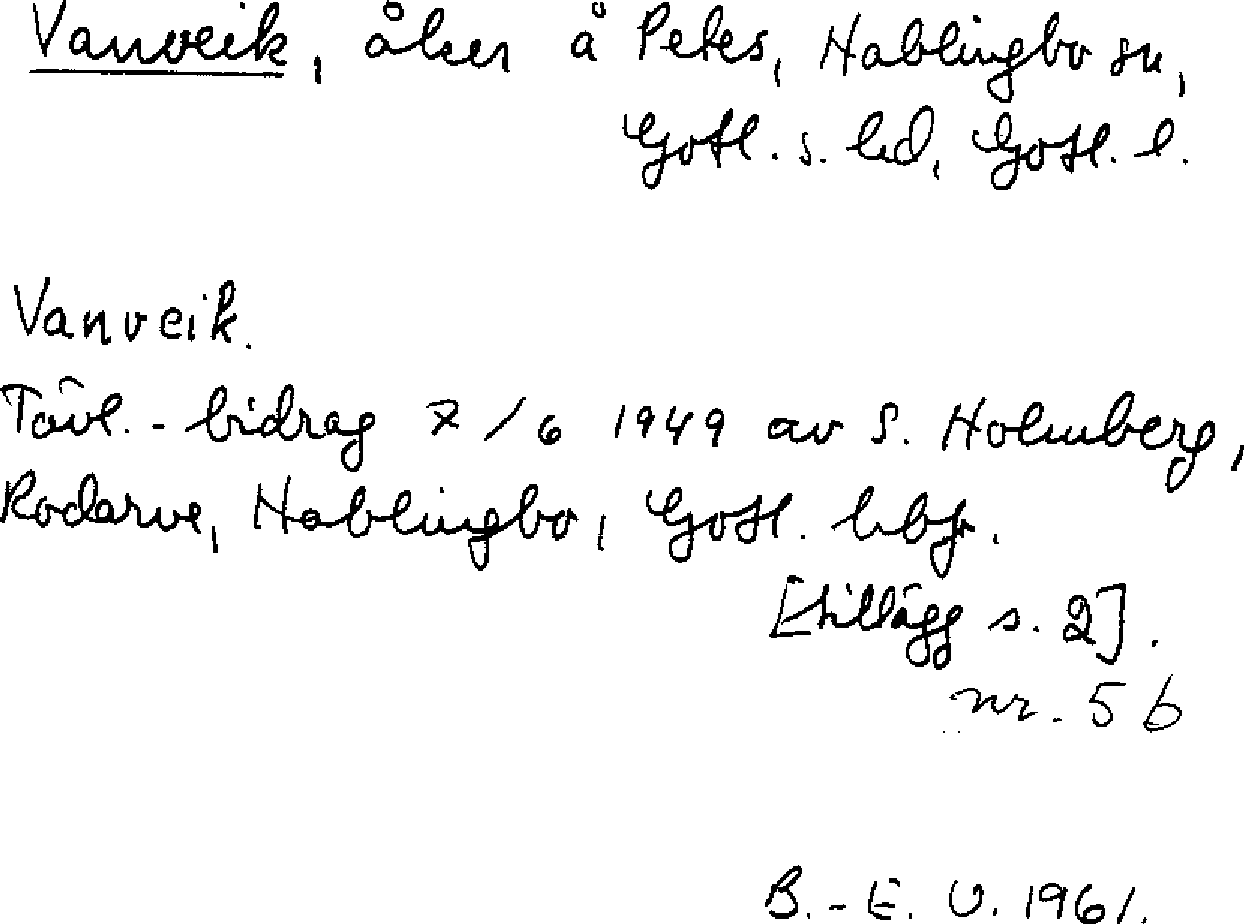 Vanveik, åker å Petes, Hablingbo sn,
Gotl. s. hd, Gotl. l.
Vanveik.
Tävl.-bidrag 7/6 1949 av S. Holmberg,
Rodarve, Hablingbo, Gotl. hbg.
[tillägg s. 2].
nr. 5 b
B.-E. U. 1961.